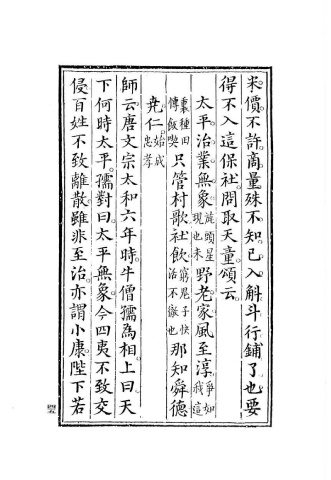 米價不許商量殊不知已入斛斗行鋪了也要
得不入這保社問取天童頌云
太平治業無象旄頭星現也未野老家風至淳爭如我這
裏種田博飯喫只管村歌社飲窮鬼子快活不徹也那知舜德
堯仁始成忠孝
師云唐文宗太和六年時牛僧孺為相上曰天
下何時太平孺對曰太平無象今四夷不致交
侵百姓不致離散雖非至治亦謂小康陛下若